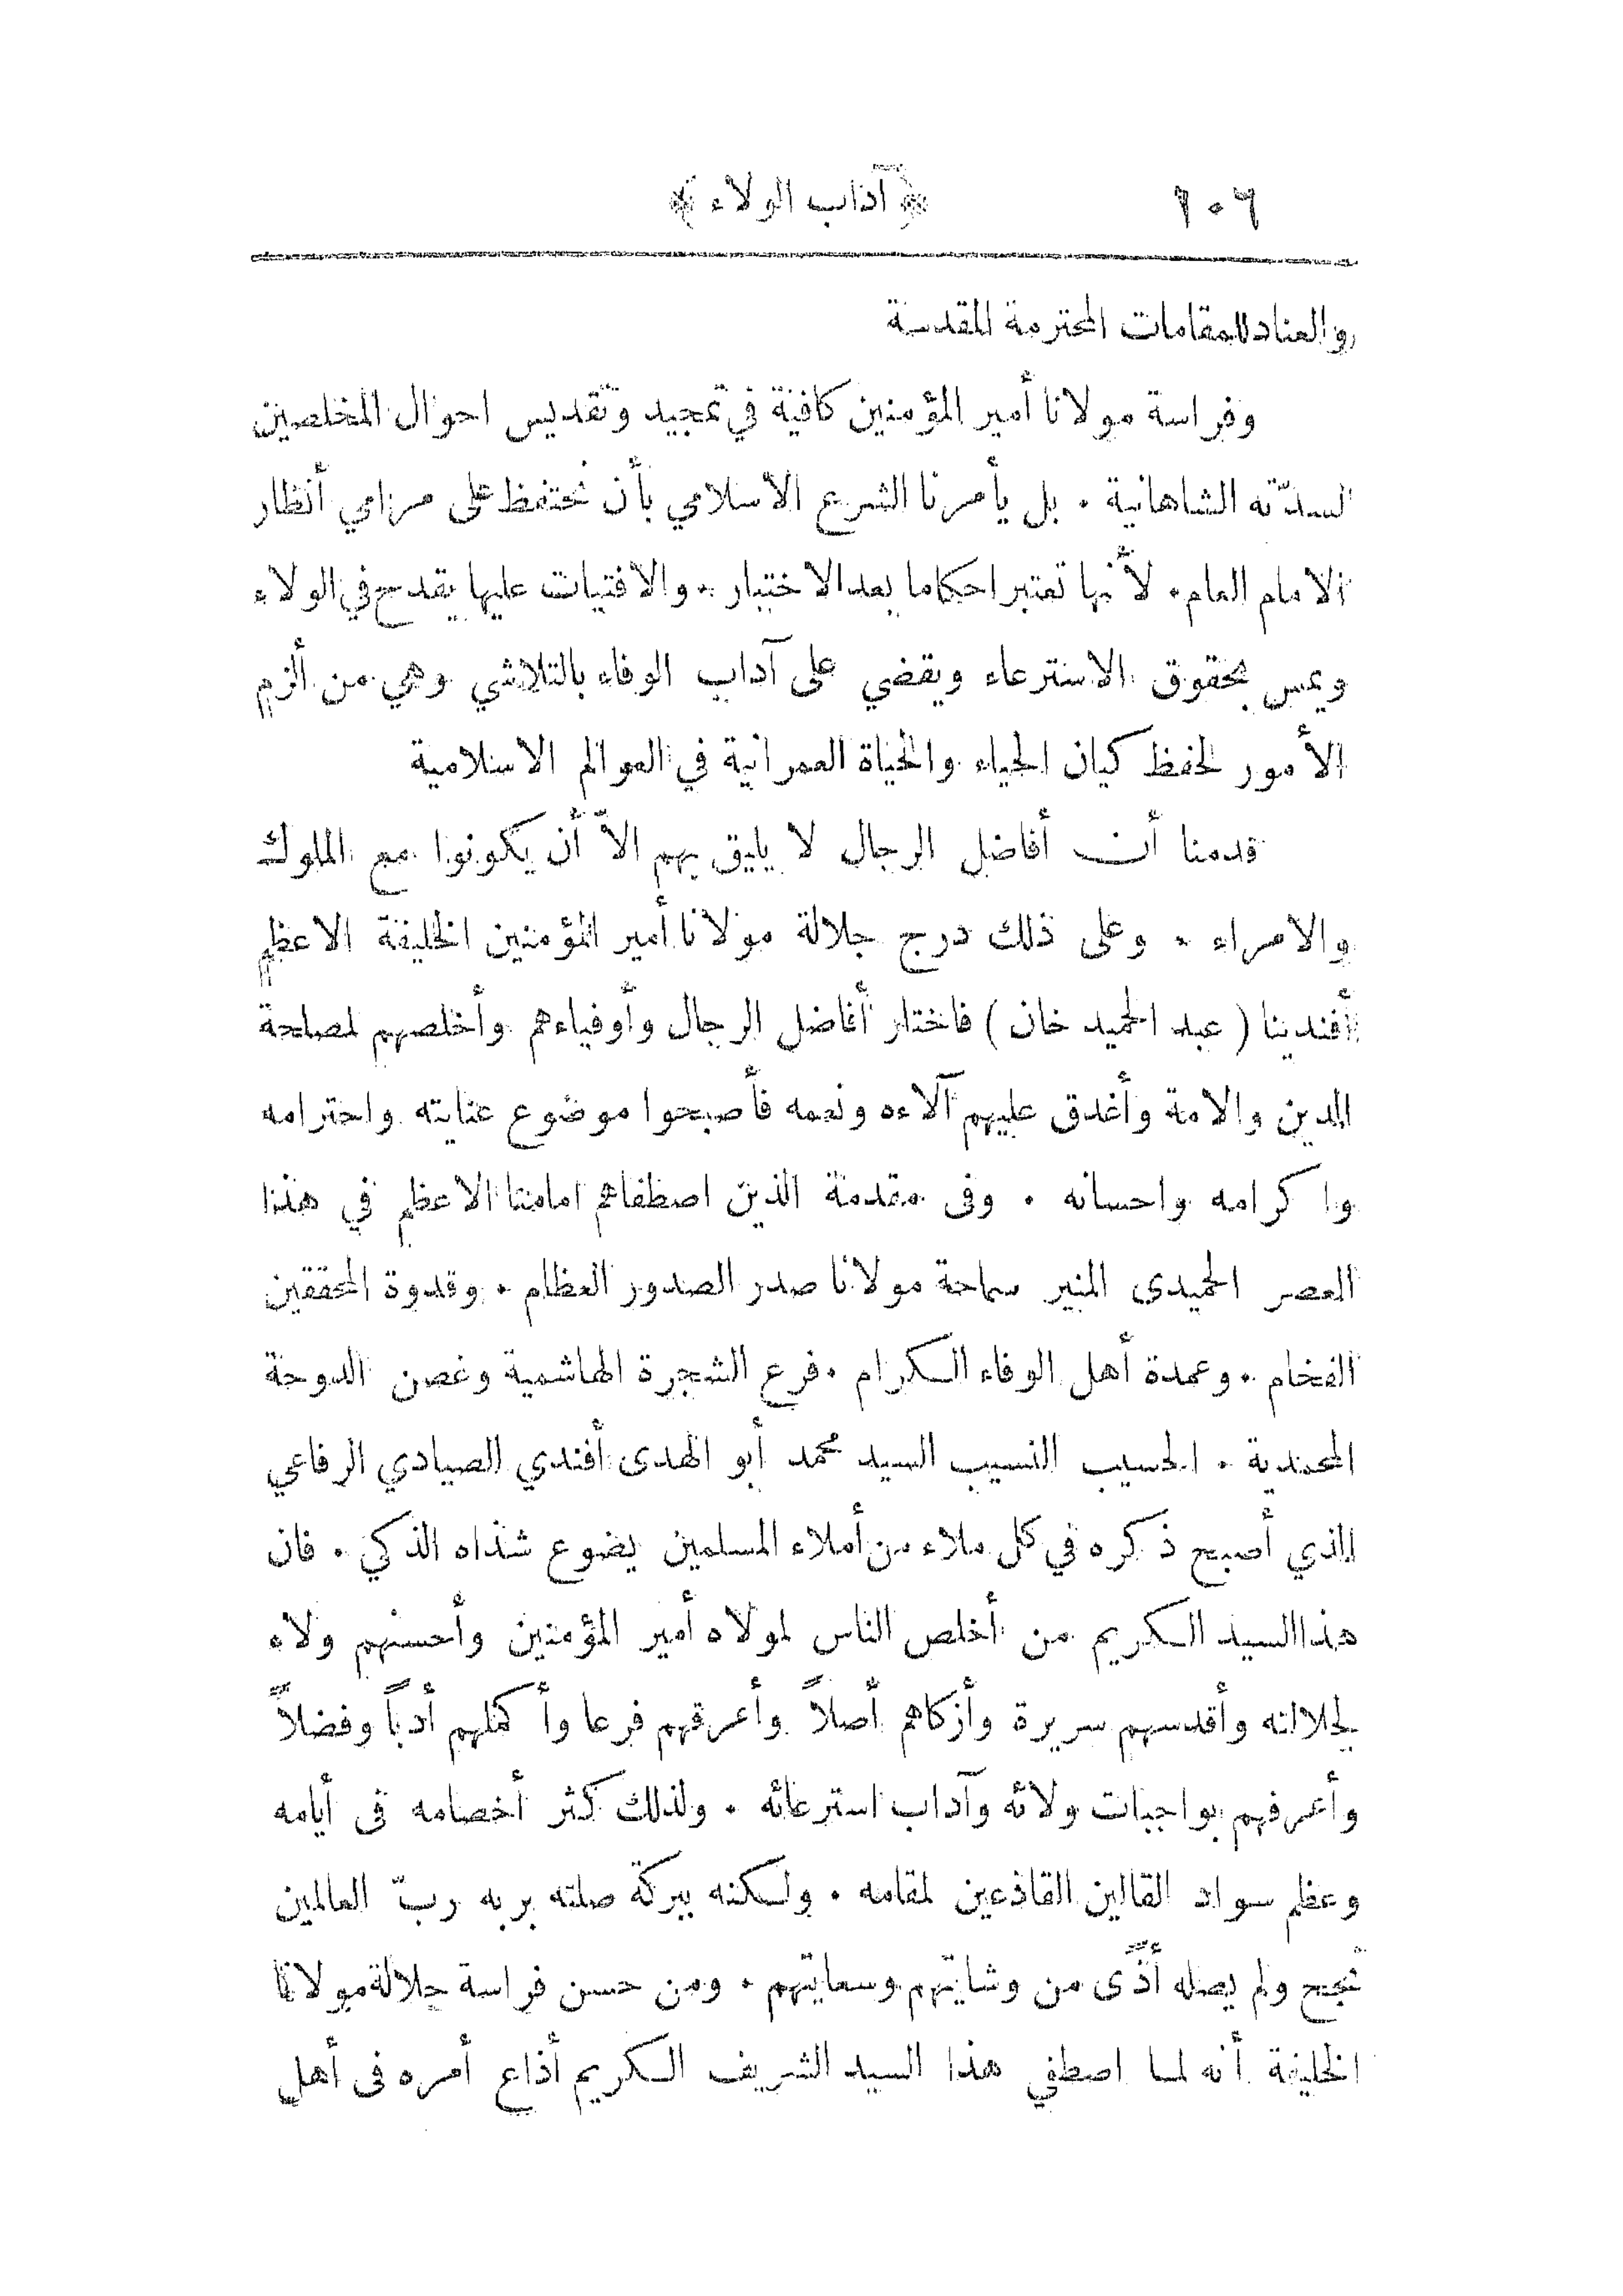 ١٠٦ ﴿ آداب الولاء ﴾
والعناد للمقامات المحترمة المقدسة
وفراسة مولانا أمير المؤمنين كافية في تمجيد وتقديس احوال المخلصين
لسدّته الشاهانية ٠ بل يأمرنا الشرع الاسلامي بأن نحتفظ على مرامي أنظار
الامام العام ٠ لأنها تعتبر احكاما بعد الاختبار ٠ والافتيات عليها يقدح في الولاء
ويمس بحقوق الاسترعاء ويقضي على آداب الوفاء بالتلاشي وهي من ألزم
الأمور لحفظ كيان الحياء والحياة العمرانية في العوالم الاسلامية
قدمنا أن أفاضل الرجال لا يليق بهم الاّ أن يكونوا مع الملوك
والامراء ٠ وعلى ذلك درج جلالة مولانا أمير المؤمنين الخليفة الاعظم
أفندينا ( عبد الحميد خان ) فاختار أفاضل الرجال وأوفياءهم وأخلصهم لمصلحة
الدين والامة وأغدق عليهم آلاءه ونعمه فأصبحوا موضوع عنايته واحترامه
واكرامه واحسانه ٠ وفى مقدمة الذين اصطفاهم امامنا الاعظم في هذا
العصر الحميدى المنير سماحة مولانا صدر الصدور العظام ٠ وقدوة المحققين
الفخام ٠ وعمدة أهل الوفاء الكرام ٠ فرع الشجرة الهاشمية وغصن الدوحة
المحمدية ٠ الحسيب النسيب السيد محمد أبو الهدى أفندي الصيادي الرفاعي
الذي أصبح ذكره في كل ملاء من أملاء المسلمين يضوع شذاه الذكي ٠ فان
هذا السيد الكريم من أخلص الناس لمولاه أمير المؤمنين وأحسنهم ولاء
لجلالته وأقدسهم سريرة وأزكاهم أصلاً وأعرقهم فرعا وأكملهم أدباً وفضلاً
وأعرفهم بواجبات ولائه وآداب استرعائه ٠ ولذلك كثر أخصامه فى أيامه
وعظم سواد القالين القاذعين لمقامه ٠ ولكنه ببركة صلته بربه ربّ العالمين
نجح ولم يصله أذًى من وشايتهم وسعايتهم ٠ ومن حسن فراسة جلالة مولانا
الخليفة أنه لما اصطفي هذا السيد الشريف الكريم أذاع أمره فى أهل